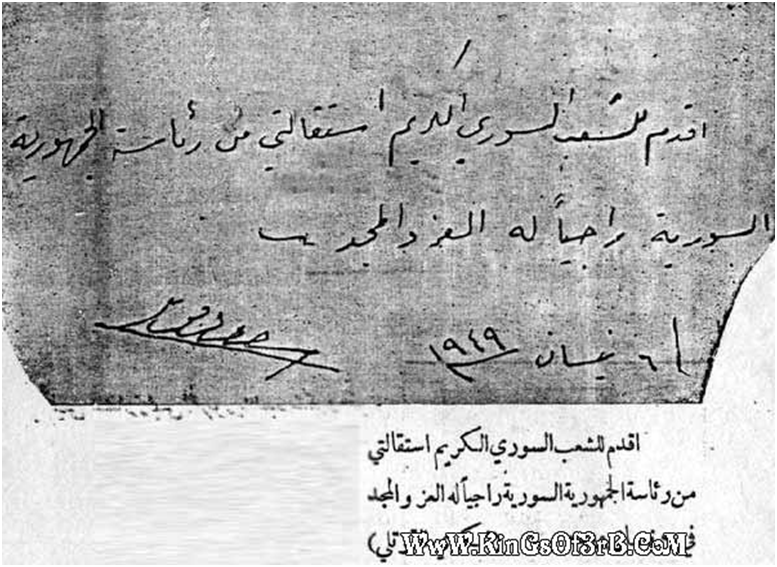 اقدم للشعب السوري الكريم استقالتي من رئاسة الجمهورية
السورية راجياً له العز والمجد
٦ نيسان ١٩٤٩
اقدم للشعب السوري الكريم استقالتي
من رئاسة الجمهورية السورية راجياً له العز والمجد
في
WwW.KinGsOf3rB.CoM